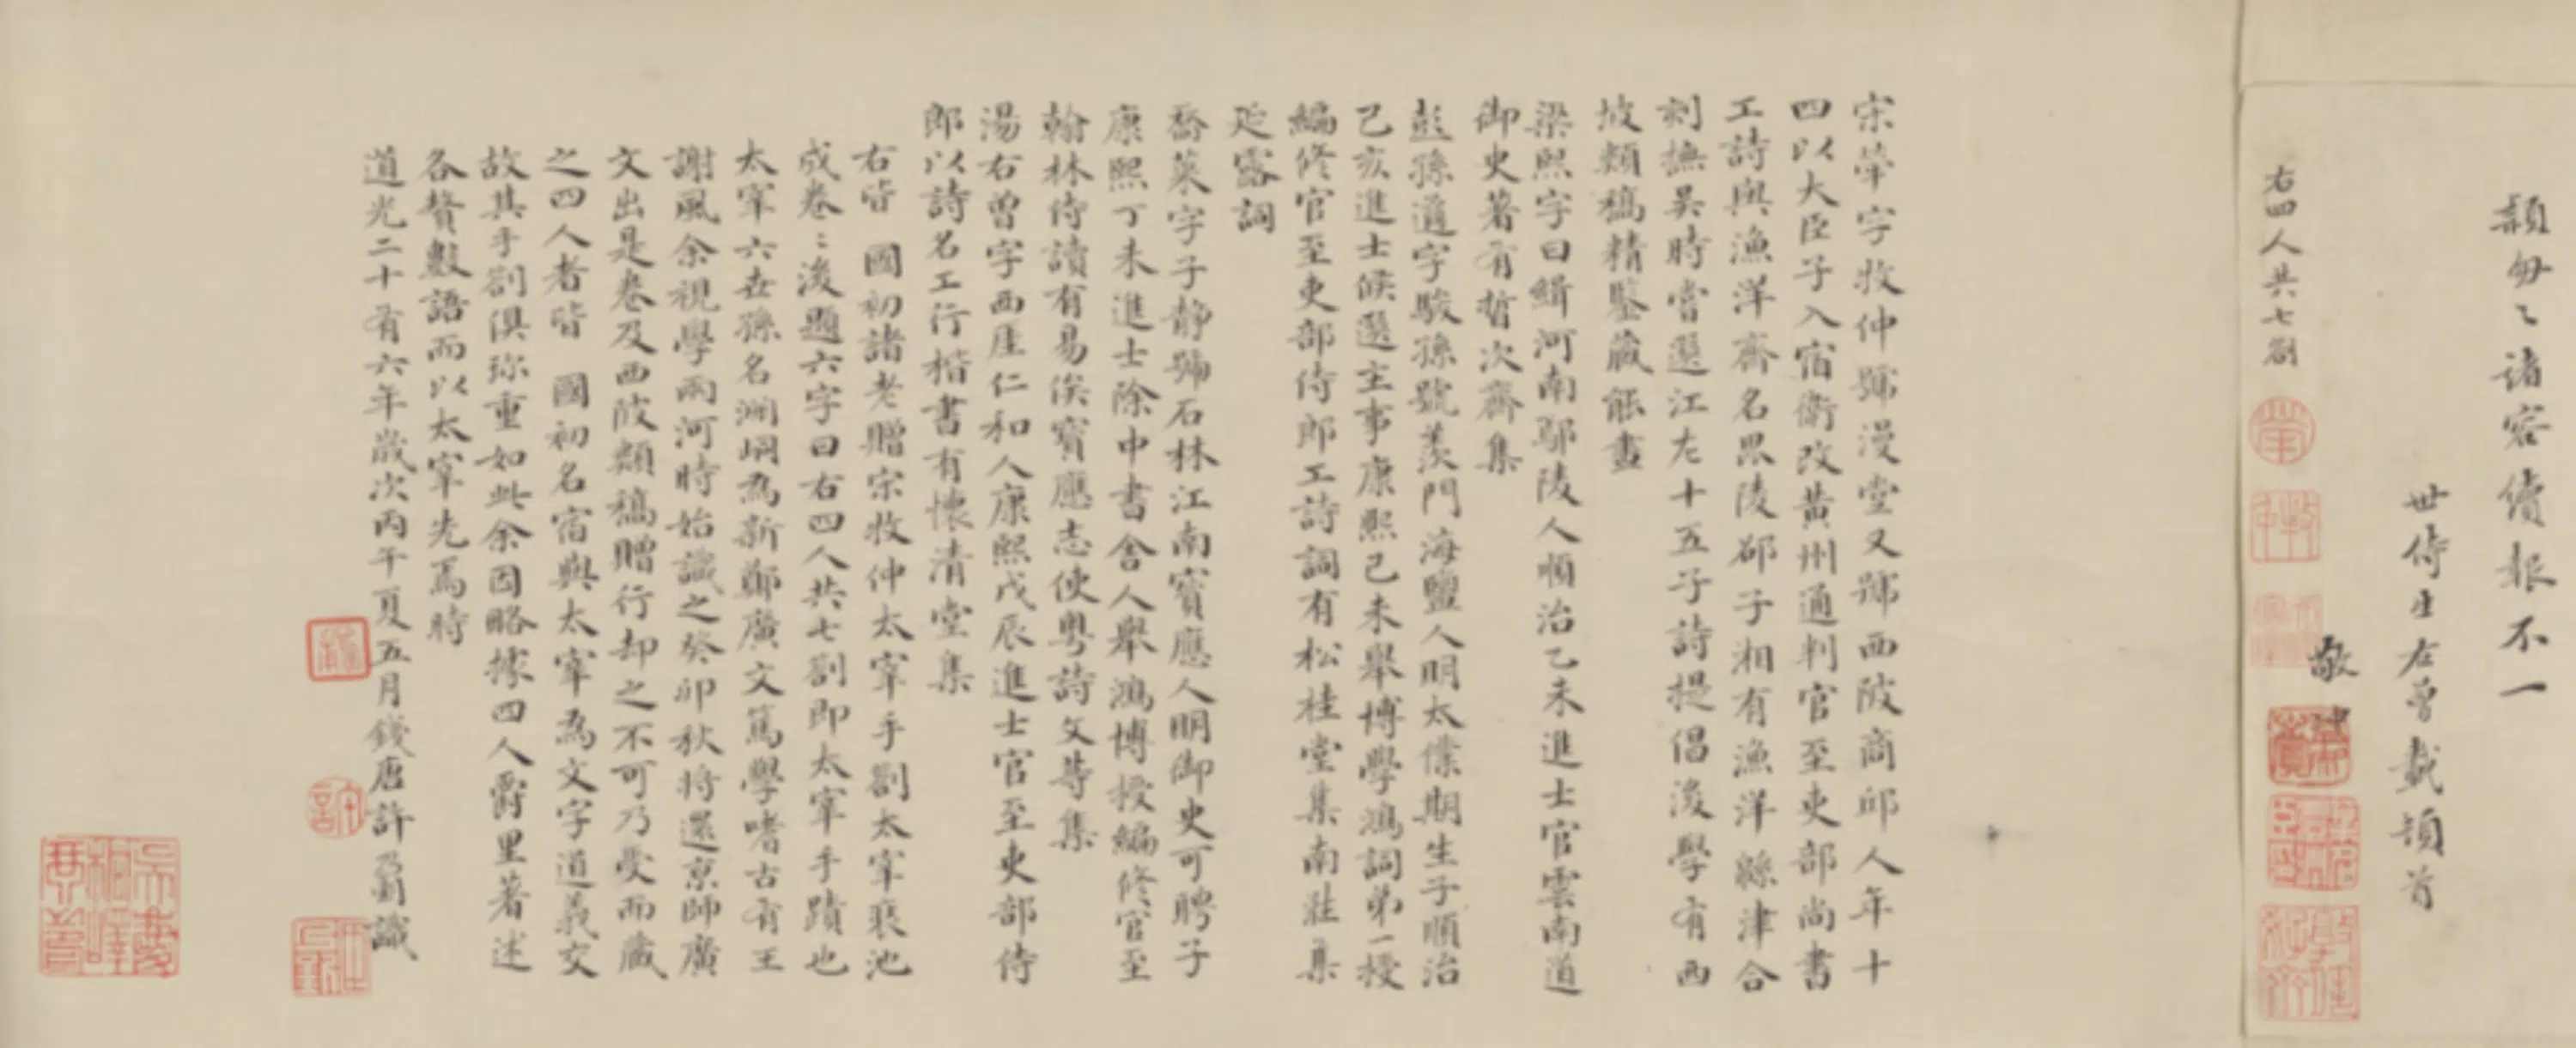 類匆匆諸容續報不一
世侍生右曾載頓首
敬沖
右四人共七劄
宋犖字牧仲號漫堂又號西陂商邱人年十
四以大臣子入宿衛改黃州通判官至吏部尚書
工詩與漁洋齊名毘陵邵子湘有漁洋緜津合
刻撫吳時嘗選江左十五子詩提倡後學有西
坡類稿精鑒藏能畫
梁熙字曰緝河南鄢陵人順治乙未進士官雲南道
御史著有晳次齋集
彭孫遹字駿孫號羨門海鹽人明太僕期生子順治
己亥進士候選主事康熙己未舉博學鴻詞弟一授
編修官至吏部侍郎工詩詞有松桂堂集南㳉集
延露詞
喬萊字子靜號石林江南寶應人明御史可聘子
康熙丁未進士除中書舍人舉鴻博授編修官至
翰林侍讀有易俟寶應志使粵詩文等集
湯右曾字西厓仁和人康熙戊辰進士官至吏部侍
郎以詩名工行楷書有懷清堂集
右皆 國初諸老贈宋牧仲太宰手劄太宰裒池
成卷〻後題六字曰右四人共七劄即太宰手蹟也
太宰六世孫名渊峒為新鄭廣文篤學嗜古有王
謝風余視學兩河時始識之癸卯秋將還京師廣
文出是卷及西陂類稿贈行却之不可乃受而藏
之四人者皆 國初名宿與太宰為文字道義交
故其手劄俱珍重如此余因略據四人爵里著述
各贅數語而以太宰先焉時
道光二十有六年歲次丙午夏五月錢唐許乃釗識